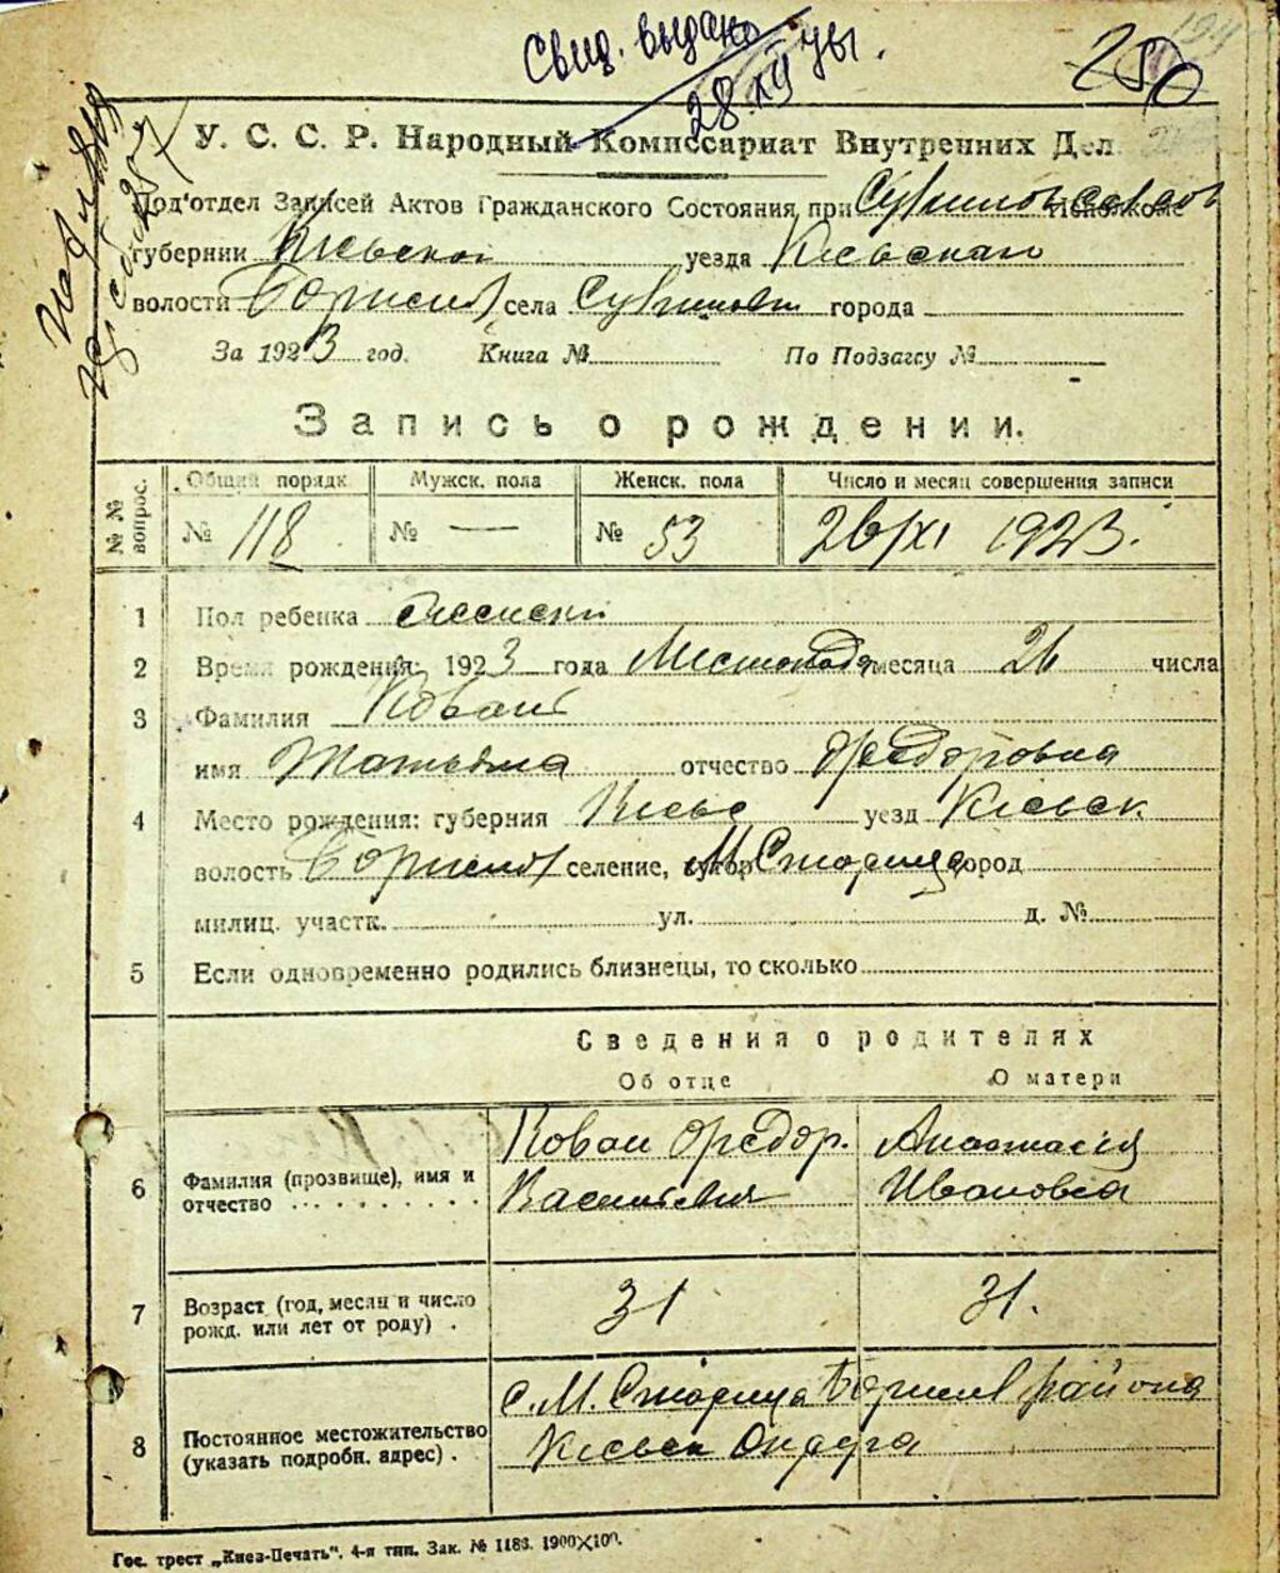 Свид. выдано
28.XII
250
У. С. С. Р. Народный Комиссариат Внутренних Дел
Под'отдел Записей Актов Гражданского Состояния при Исполкоме
губернии Киевской уезда Киевскаго
волости Борисп села города
За 1923 год. Книга № По Подзагсу №
Запись о рождении.
№ № вопрос. Общий порядк Мужск. пола Женск. пола Число и месяц совершения записи
№ 118 № — № 53 26/XI 1923.
1 Пол ребенка
2 Время рождения: 1923 года Листопада месяца 26 числа
3 Фамилия Коваль
имя Татьяна отчество Федоровна
4 Место рождения: губерния Киевс уезд Киевск.
волость Борисп селение, хутор М Старица город
милиц. участк. ул. д. №
5 Если одновременно родились близнецы, то сколько
Сведения о родителях
Об отце О матери
6 Фамилия (прозвище), имя и отчество
Коваль Федор. Васильевич
Анастасія Ивановна
7 Возраст (год, месяц и число рожд. или лет от роду) .
31 31.
8 Постоянное местожительство (указать подробн. адрес) .
с. М. Старица района
Киевск Округа
Гос. трест „Киев-Печать“. 4-я тип. Зак. № 1186. 1900×100.